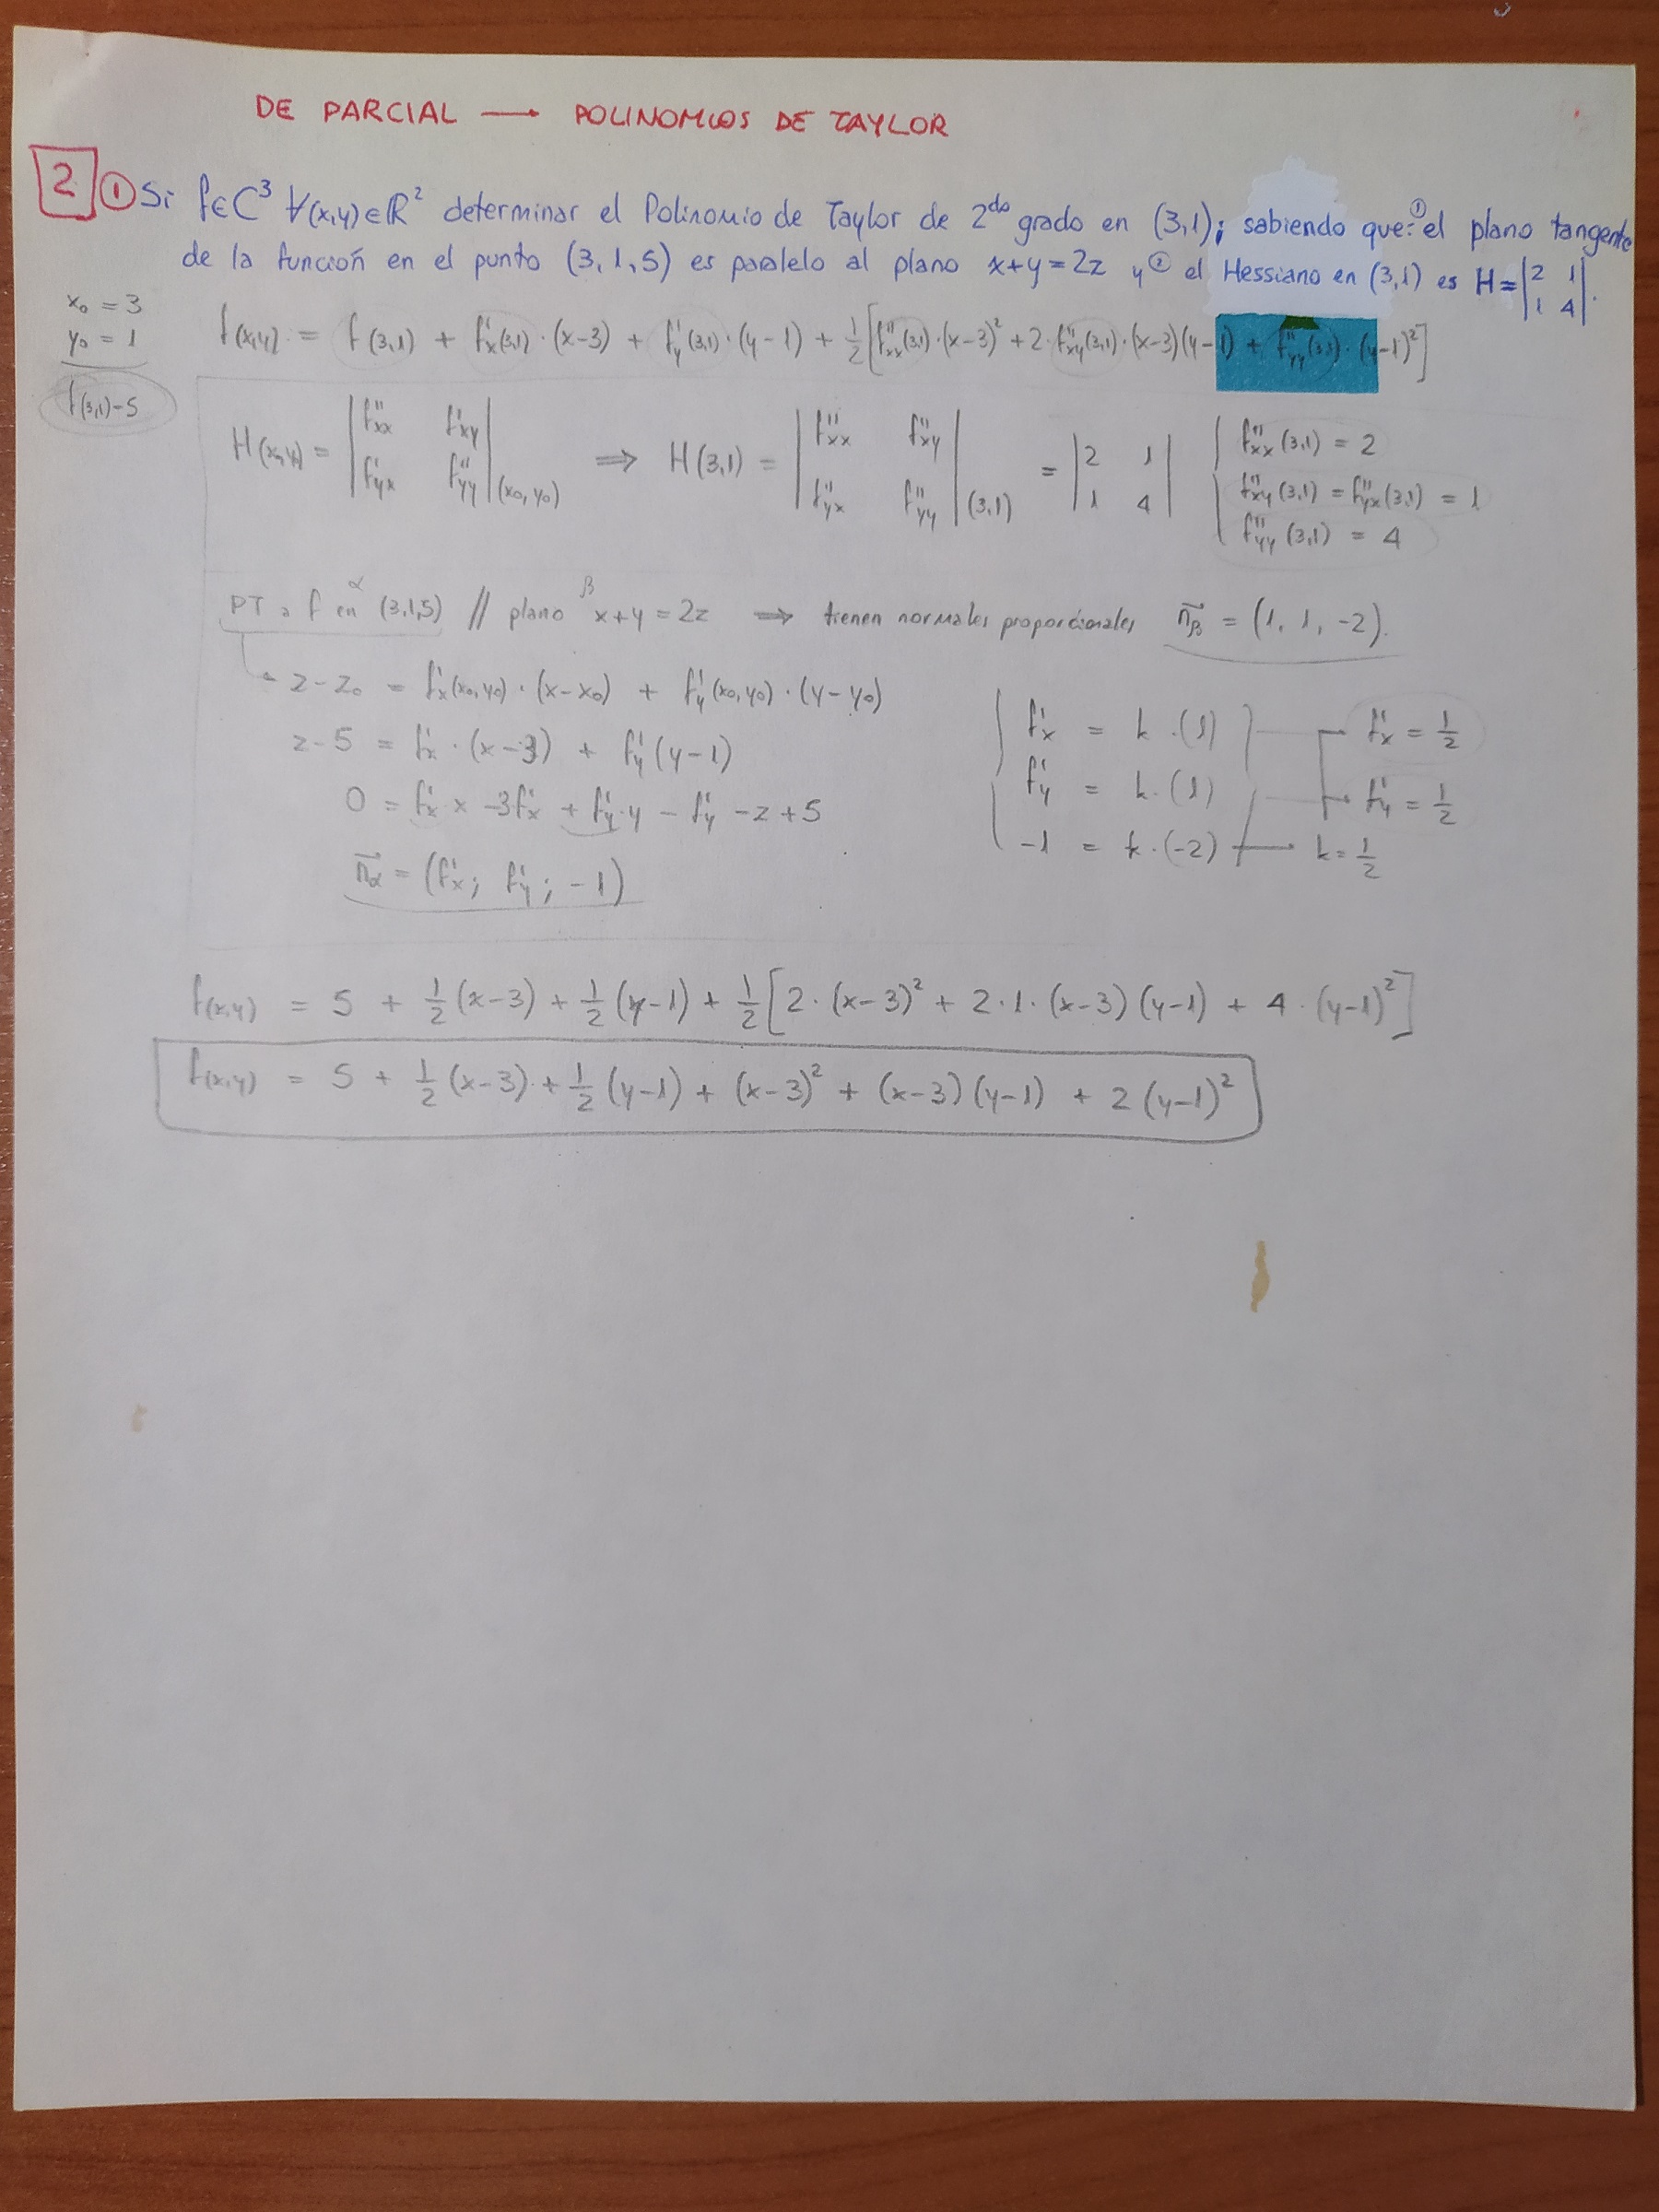 DE PARCIAL → POLINOMIOS DE TAYLOR
2 ① Si f∈C³ ∀(x,y)∈ℝ² determinar el Polinomio de Taylor de 2do grado en (3,1); sabiendo que: ① el plano tangente
de la función en el punto (3,1,5) es paralelo al plano x+y=2z y ② el Hessiano en (3,1) es H=|2 1; 1 4|.
x₀ = 3
y₀ = 1
f(3,1)-5
f(x,y) = f(3,1) + f'x(3,1)·(x-3) + f'y(3,1)·(y-1) + 1/2[f''xx(3,1)·(x-3)² + 2·f''xy(3,1)·(x-3)(y-1) + f''yy(3,1)·(y-1)²]
H(x₀,y₀) = |f''xx f''xy; f''yx f''yy|(x₀,y₀) ⇒ H(3,1) = |f''xx f''xy; f''yx f''yy|(3,1) = |2 1; 1 4|
f''xx(3,1) = 2
f''xy(3,1) = f''yx(3,1) = 1
f''yy(3,1) = 4
PT a f en (3,1,5) α // plano β x+y=2z ⇒ tienen normales proporcionales nβ = (1, 1, -2).
z-z₀ = f'x(x₀,y₀)·(x-x₀) + f'y(x₀,y₀)·(y-y₀)
z-5 = f'x·(x-3) + f'y(y-1)
0 = f'x x -3f'x + f'y·y - f'y -z+5
nα = (f'x; f'y; -1)
f'x = k·(1) → f'x = 1/2
f'y = k·(1) → f'y = 1/2
-1 = k·(-2) → k = 1/2
f(x,y) = 5 + 1/2(x-3) + 1/2(y-1) + 1/2[2·(x-3)² + 2·1·(x-3)(y-1) + 4·(y-1)²]
f(x,y) = 5 + 1/2(x-3) + 1/2(y-1) + (x-3)² + (x-3)(y-1) + 2(y-1)²